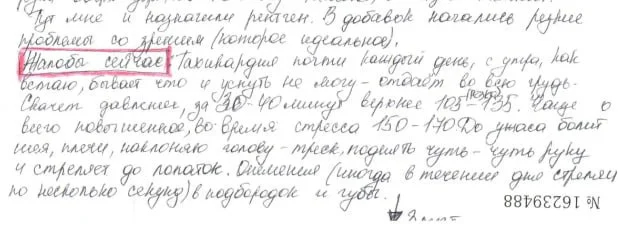 Тут мне и назначили рентген. В добавок начались резкие
проблемы со зрением (которое идеальное).
Жалобы сейчас: Тахикардия почти каждый день, с утра, как
встаю, бывает что и уснуть не могу - отдаёт во всю грудь.
Скачет давление, за 30-40 минут верхнее 105-135. Чаще
всего повышенное, во время стресса 150-170. До ужаса болит
шея, плечи, наклоняю голову - треск, поднять чуть-чуть руку
и стреляет до лопаток. Онемения (иногда в течении дня стреляет
по несколько секунд) в подбородок и губы.
№ 16239488